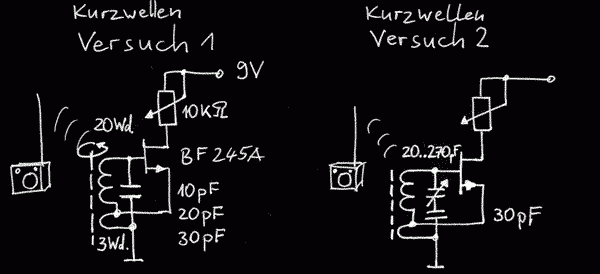 Kurzwellen
Versuch 1
9V
10KΩ
20Wd.
BF 245A
10pF
20pF
30pF
3Wd.
Kurzwellen
Versuch 2
20..270pF
30pF